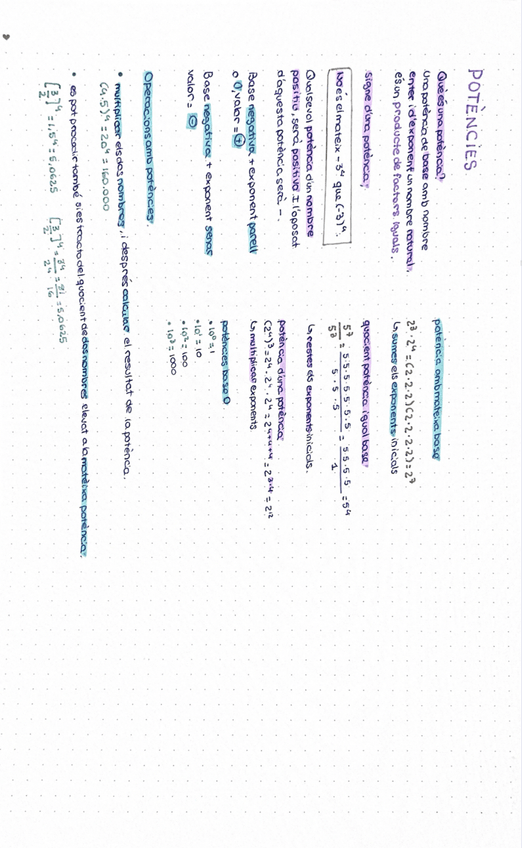 POTÈNCIES
Què és una potència?
Una potència de base amb nombre
enter i d'exponent un nombre natural,
és un producte de factors iguals.
signe d'una potència:
No és el mateix -3⁴ que (-3)⁴.
Qualsevol potència d'un nombre
positiu, serà positiva I l'oposat
d'aquesta potència serà -.
Base negativa + exponent parell
o 0, valor = +
Base negativa + exponent senar
valor = -
potència amb mateixa base
2³·2⁴=(2·2·2)(2·2·2·2)=2⁷
↳ sumes els exponents inicials
quocient potència igual base
5⁷/5³ = 5·5·5·5·5·5·5/5·5·5 = 5·5·5·5/1 = 5⁴
↳ restes els exponents inicials.
potència d'una potència
(2⁴)³=2⁴·2⁴·2⁴=2⁴⁺⁴⁺⁴=2³·⁴=2·2
↳ multiplicar exponents
potències base 0
• 10⁰=1
• 10¹=10
• 10²=100
• 10³=1000
Operacions amb potències:
• multiplicar els dos nombres, i després calcular el resultat de la potència.
(4·5)⁴=20⁴=160.000
• es pot procedir també si es tracta del quocient de dos nombres elevat a la mateixa potència:
[3/2]⁴=1,5⁴=5,0625 [3/2]⁴=3⁴/2⁴=81/16=5,0625